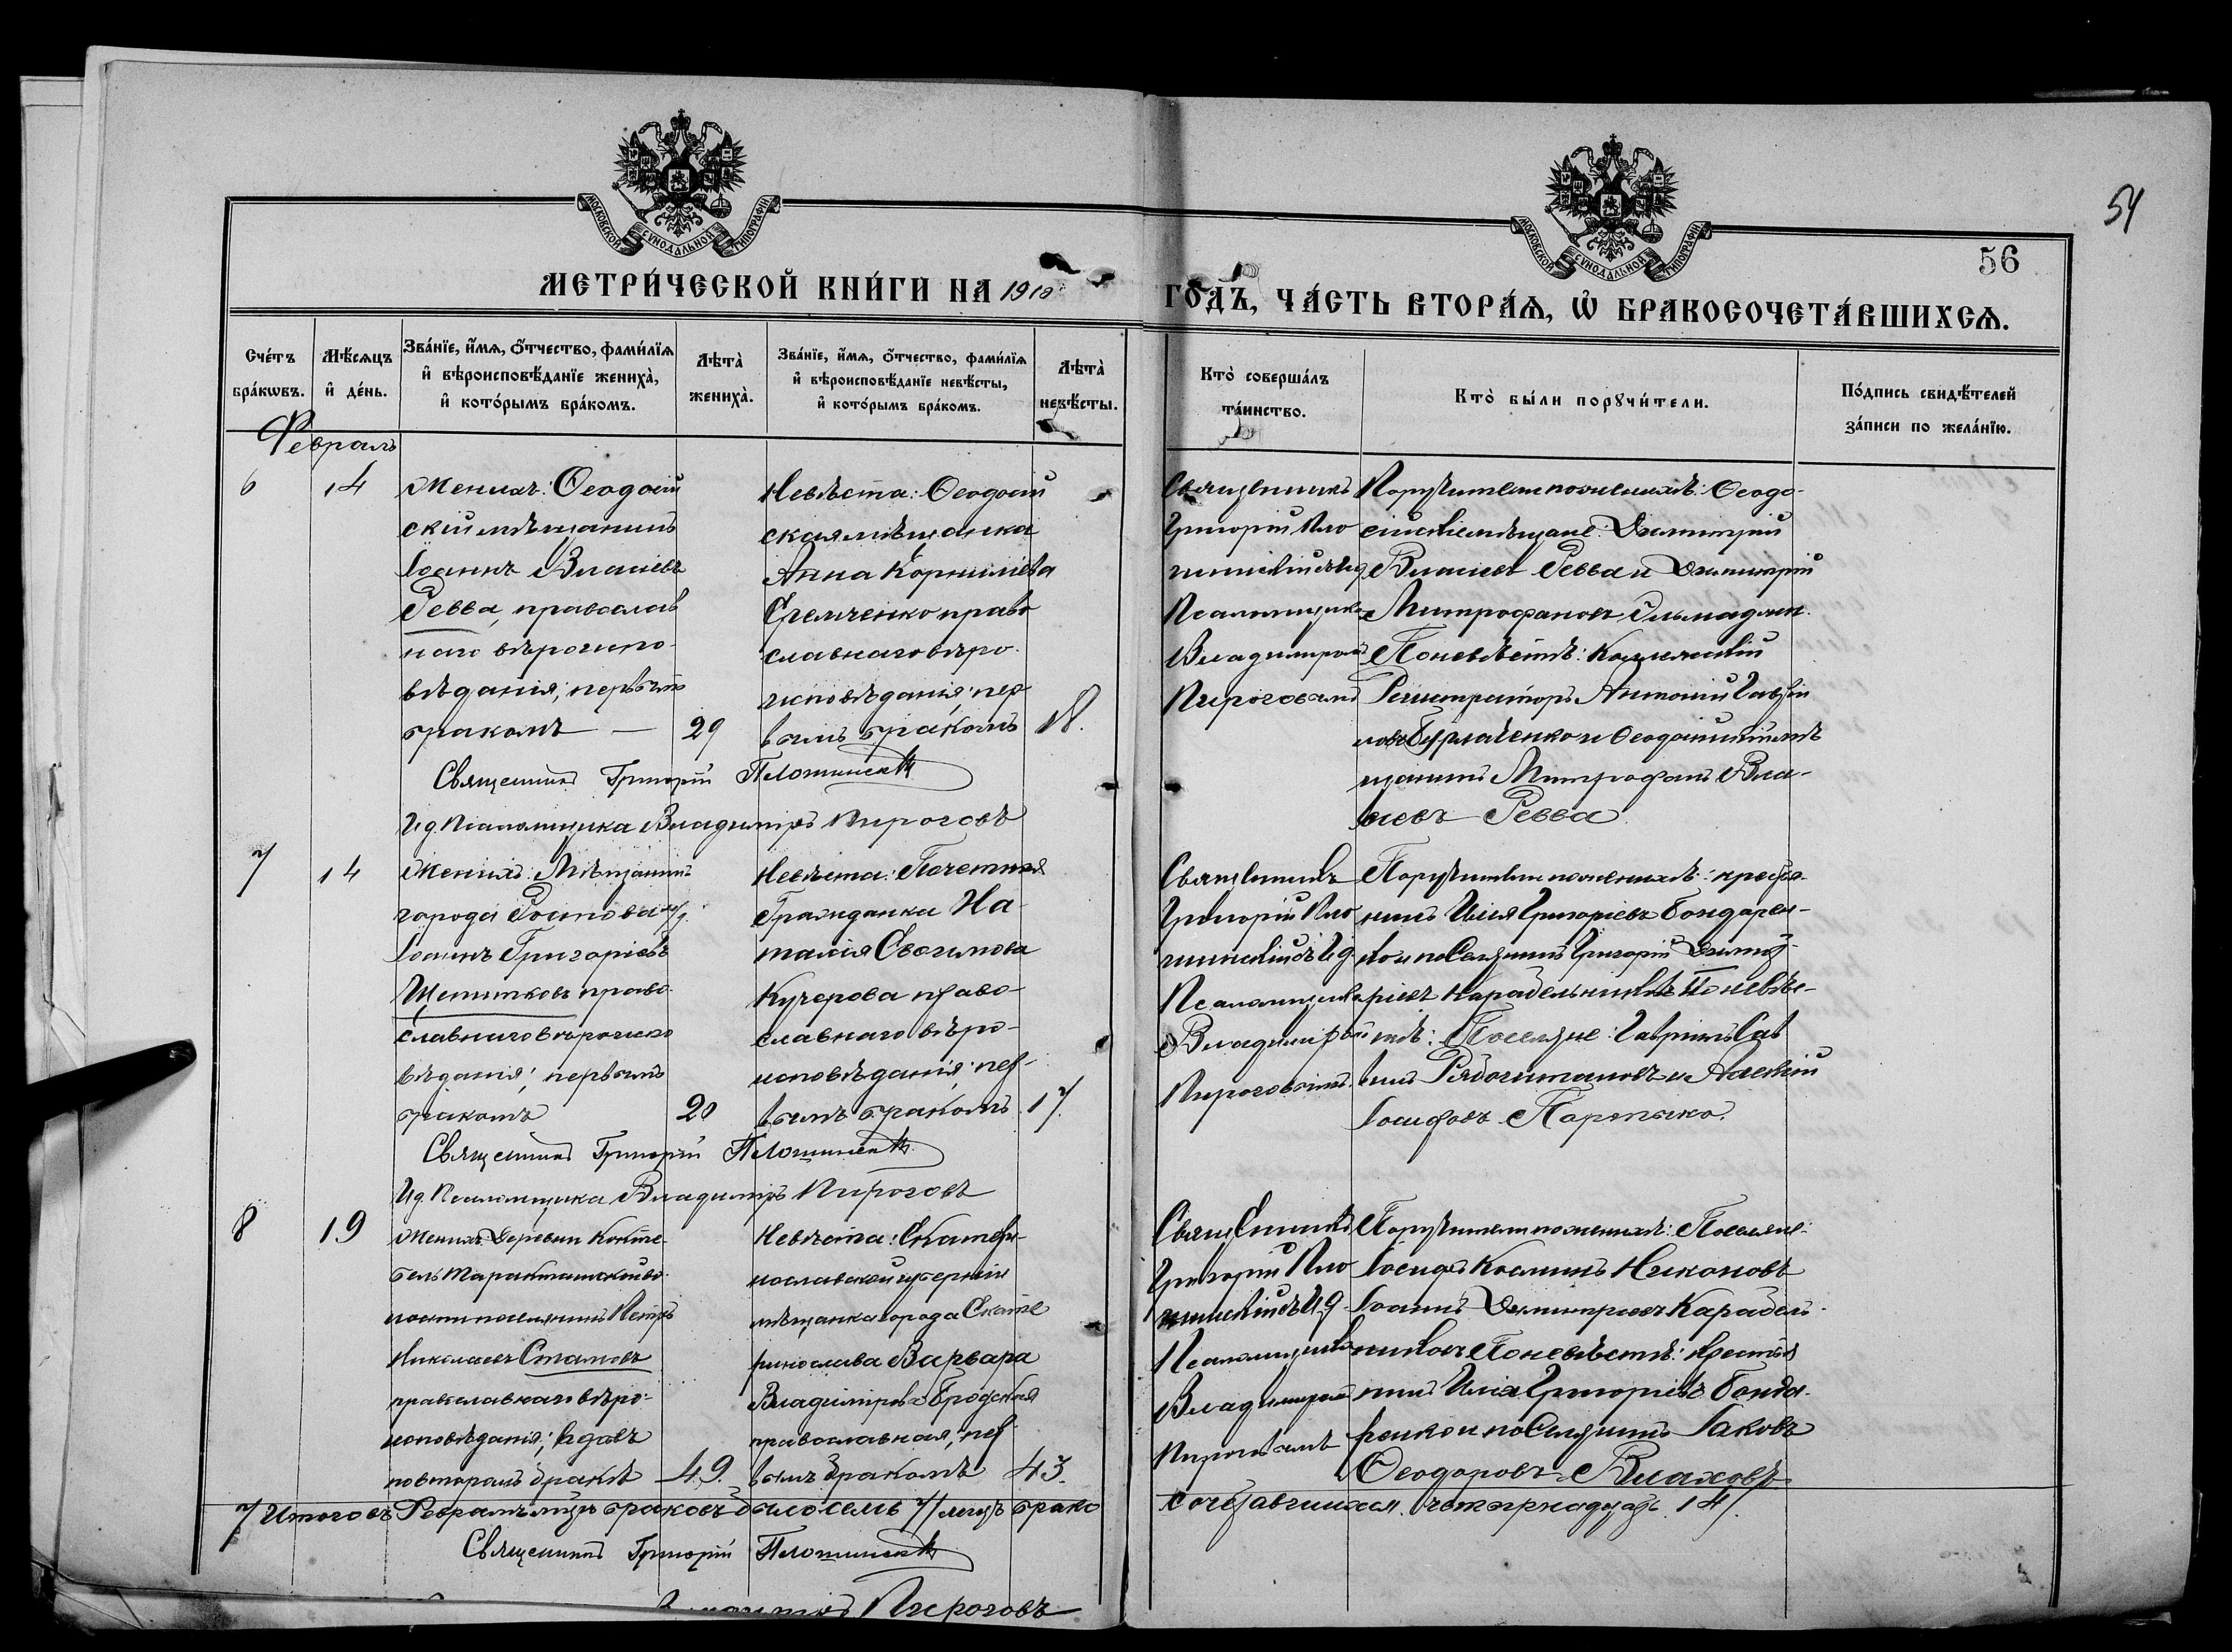 54
56
МОСКОВСКОЙ СѴНОДАЛЬНОЙ ТИПОГРАФІИ
МОСКОВСКОЙ СѴНОДАЛЬНОЙ ТИПОГРАФІИ
МЕТРИ́ЧЕСКОЙ КНИ́ГИ НА 1910 ГО́ДЪ, ЧА́СТЬ ВТОРА́Ѧ, Ѡ БРАКОСОЧЕТА́ВШИХСѦ.
Сче́тъ бра́кѡвъ.
Мѣ́сѧцъ и҆ де́нь.
Зва́нїе, и҆́мѧ, о҆́тчество, фами́лїѧ и҆ вѣроисповѣ́данїе женихა̀, и҆ кото́рымъ бра́комъ.
Лѣта̀ жениха̀.
Зва́нїе, и҆́мѧ, о҆́тчество, фами́лїѧ и҆ вѣроисповѣ́данїе невѣ́сты, и҆ кото́рымъ бра́комъ.
Лѣта̀ невѣ́сты.
Кто̀ соверша́лъ та́инство.
Кто̀ бы́ли порꙋчи́тели.
По́дпись свидѣ́телей за́писи по жела́нїю.
Февраль
6
14
Женихъ: Ѳеодосій
скій мѣщанинъ
Іоаннъ Власіевъ
Ревва, православ
наго вѣроиспо-
вѣданія; первымъ
бракомъ —
29
Невѣста: Ѳеодосій
ская мѣщанка
Анна Корниліева
Еремченко право
славнаго вѣро-
исповѣданія; пер-
вымъ бракомъ
18.
Священникъ
Григорій Пло
тинскій съ И.д.
Псаломщика
Владиміромъ
Пироговымъ
Поручители по женихѣ: Ѳеодо-
сійскіе мѣщане: Димитрій
Власіевъ Ревва и Димитрій
Митрофановъ
По невѣстѣ: Коллежскій
Регистраторъ Антоній Гавріи
ловъ Бурлаченко и Ѳеодосійскій мѣ
щанинъ Митрофанъ Вла-
сіевъ Ревва
Священникъ Григорій Плотинскій
И.д. Псаломщика Владиміръ Пироговъ
7
14
Женихъ: Мѣщанинъ
города Ростова н/д.
Іоаннъ Григоріевъ
Щепитковъ право-
славнаго вѣроиспо
вѣданія; первымъ
бракомъ
20
Невѣста: Почетная
Гражданка На-
талія Евѳимова
Кучерова право-
славнаго вѣро-
исповѣданія; пер-
вымъ бракомъ
17.
Священникъ
Григорій Пло
тинскій съ И.д.
Псаломщика
Владиміромъ
Пироговымъ
Поручители по женихѣ: крестья-
нинъ Илія Григоріевъ Бондарен-
ко и поселянинъ Григорій Димит-
ріевъ Карадельниковъ По невѣс-
тѣ: Поселяне: Гавріилъ Сав
винъ и Алексій
Іосифовъ
Священникъ Григорій Плотинскій
И.д. Псаломщика Владиміръ Пироговъ
8
19
Женихъ: Деревни Кокте-
бель Таракташской во-
лости поселянинъ Петръ
Николаевъ Стамовъ
православнаго вѣро-
исповѣданія; вдовъ
по второмъ бракѣ
49.
Невѣста: Екатери-
нославской губерніи
мѣщанка города Екате
ринослава Варвара
Владимірова Бродская
православная, пер-
вымъ бракомъ
43.
Священникъ
Григорій Пло
тинскій съ И.д.
Псаломщика
Владиміромъ
Пироговымъ
Поручители по женихѣ: Поселяне:
Іосифъ Косминъ Никоновъ
Іоаннъ Димитріевъ Карадель-
никовъ По невѣстѣ: Крестья
нинъ Илія Григоріевъ Бонда-
ренко и поселянинъ Іаковъ
Ѳеодоровъ Влаховъ
7 Итого въ Февралѣ м-цѣ браковъ было семь 7/ лицъ брако
сочетавшихся четырнадцать 14/.
Священникъ Григорій Плотинскій
Владиміръ Пироговъ